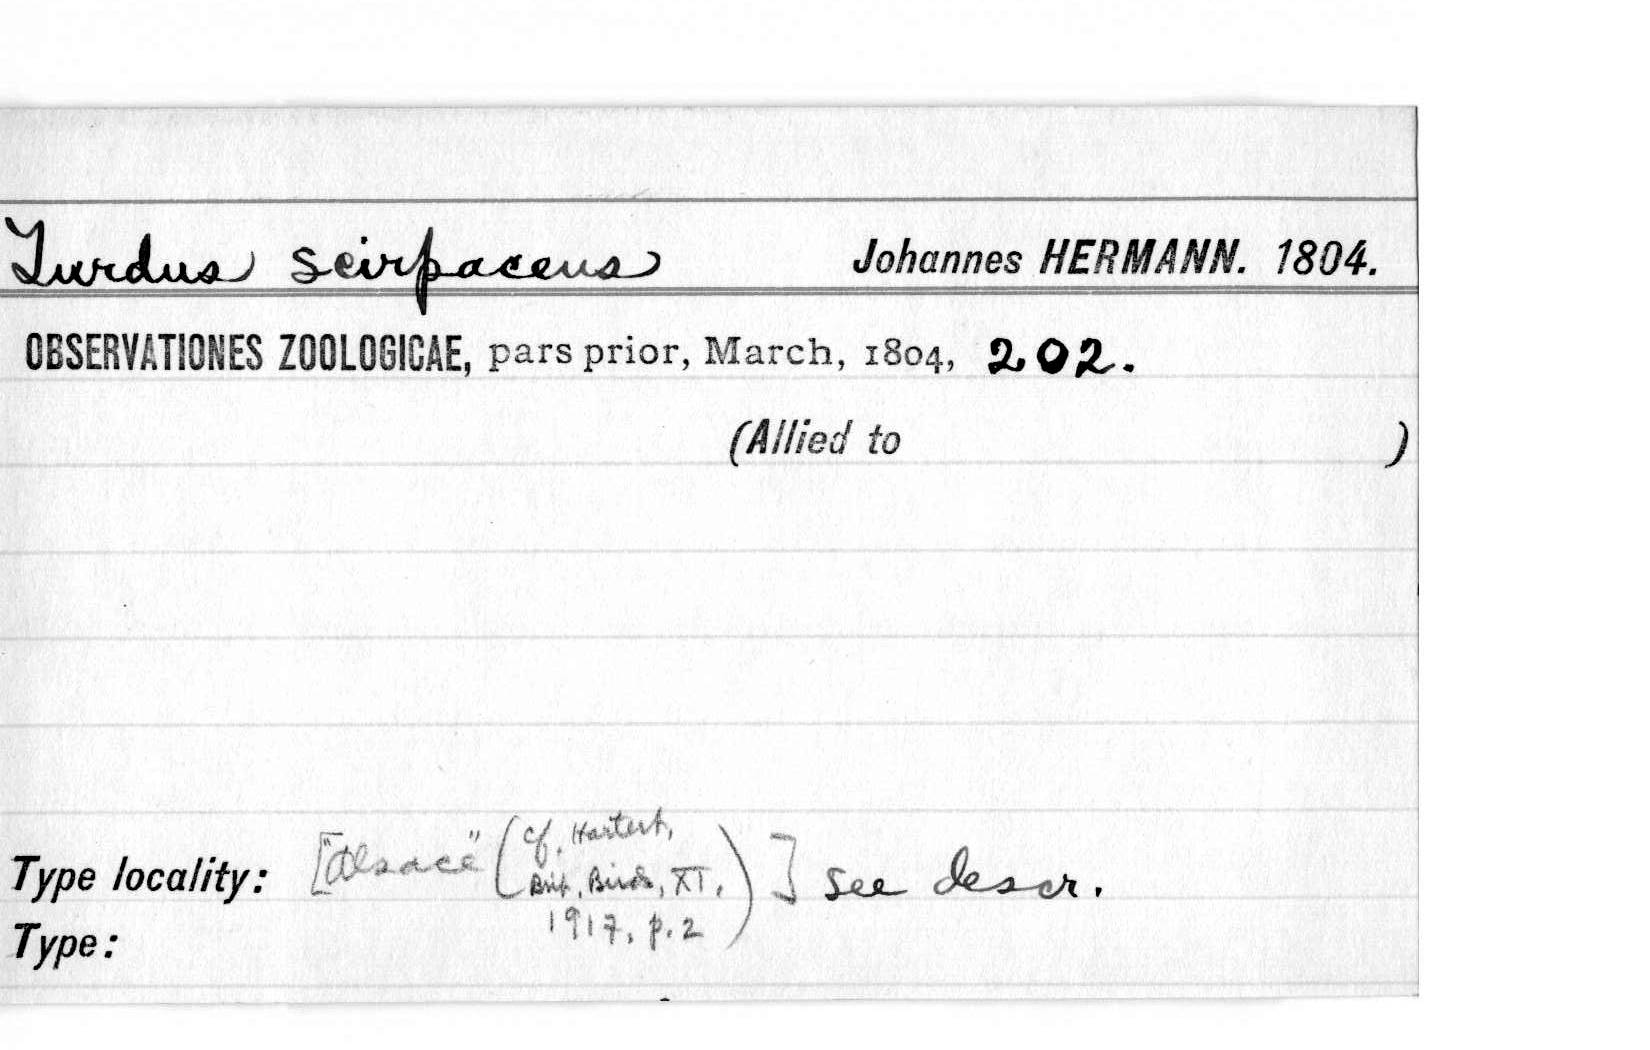 Turdus scirpaceus Johannes HERMANN. 1804.
OBSERVATIONES ZOOLOGICAE, pars prior, March, 1804, 202.
(Allied to )
Type locality: ["Alsace" (cf. Hartert, Brit. Birds, XI, 1917, p. 2)] see descr.
Type: